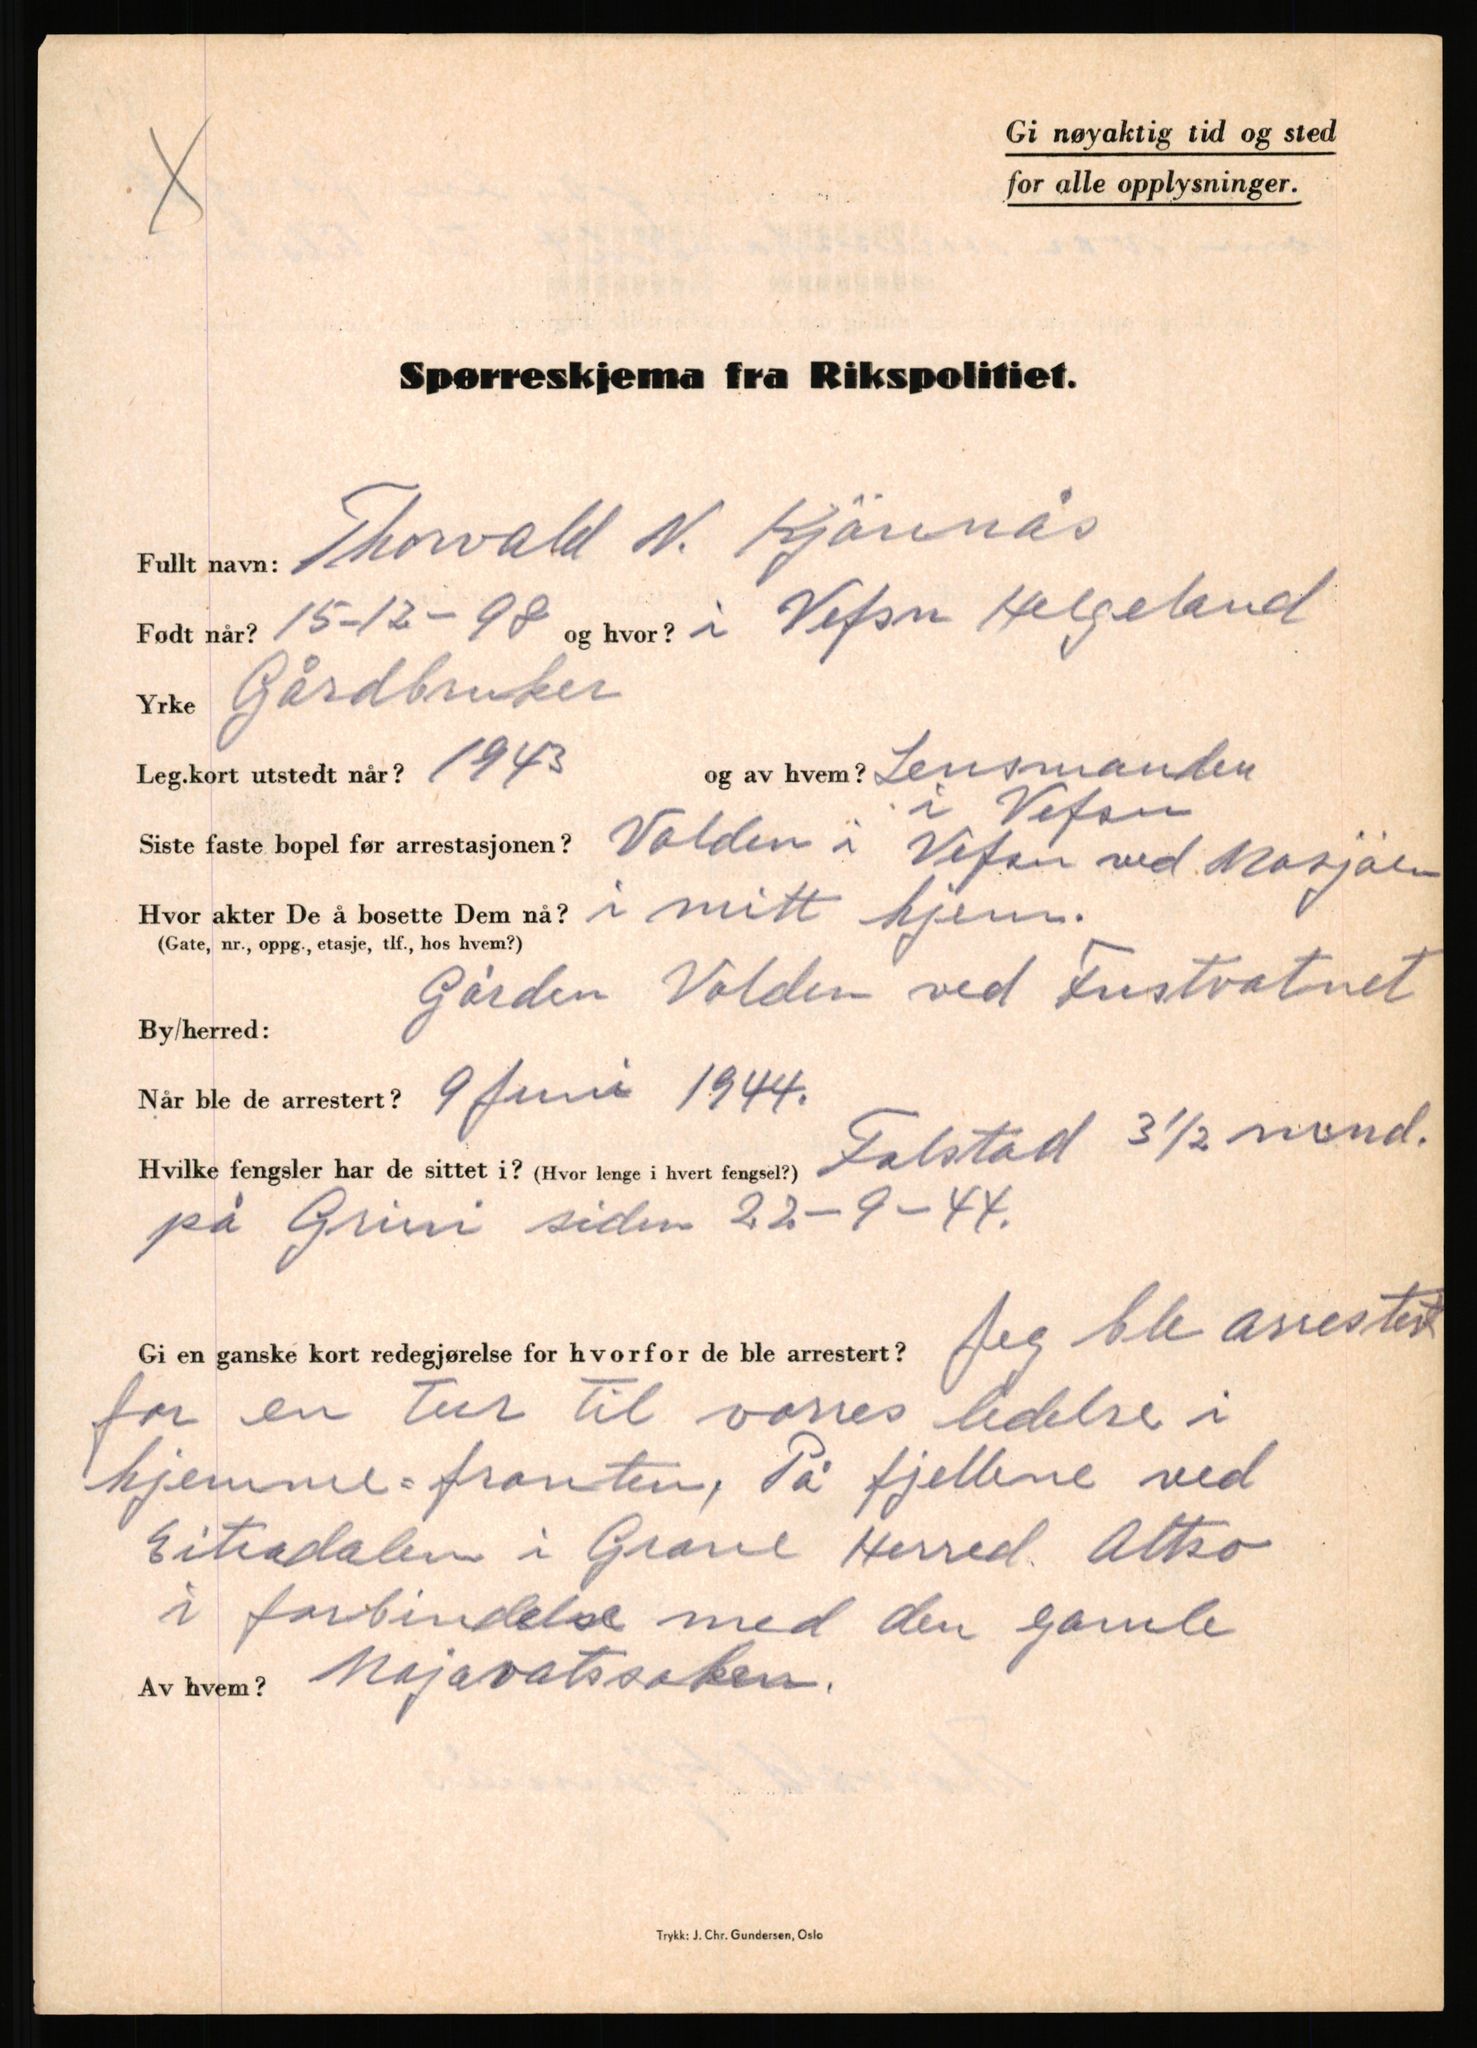 Gi nøyaktig tid og sted
for alle opplysninger.
Spørreskjema fra Rikspolitiet.
Fullt navn: Thorvald N. Kjärnås
Født når? 15-12-98 og hvor? i Vefsn Helgeland
Yrke Gårdbruker
Leg.kort utstedt når? 1943 og av hvem? Lensmanden
i Vefsn
Siste faste bopel før arrestasjonen? Valden i Vefsn ved Mosjöen
Hvor akter De å bosette Dem nå? i mitt hjem.
(Gate, nr., oppg., etasje, tlf., hos hvem?)
Gården Valden ved Fustvatnet
By/herred:
Når ble de arrestert? 9 Juni 1944.
Hvilke fengsler har de sittet i? (Hvor lenge i hvert fengsel?) Falstad 3 1/2 mond.
på Grini siden 22-9-44.
Gi en ganske kort redegjørelse for hvorfor de ble arrestert? Jeg ble arrestert
for en tur til vorres ledelse i
hjemme=fronten, På fjellene ved
Eiteådalen i Grane Herred. Altso
i forbindelse med den gamle
Av hvem? Majavatssaken.
Trykk: J. Chr. Gundersen, Oslo